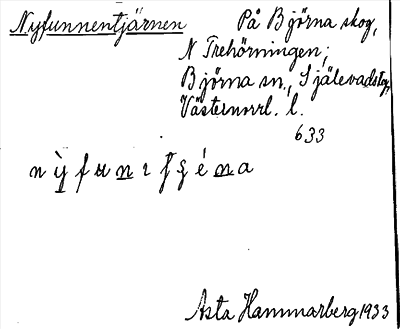 Nyfunnentjärnen På Björna skog,
N Trehörningen;
Björna sn., Själevads tg,
Västernorrl. l.
633
Asta Hammarberg 1933